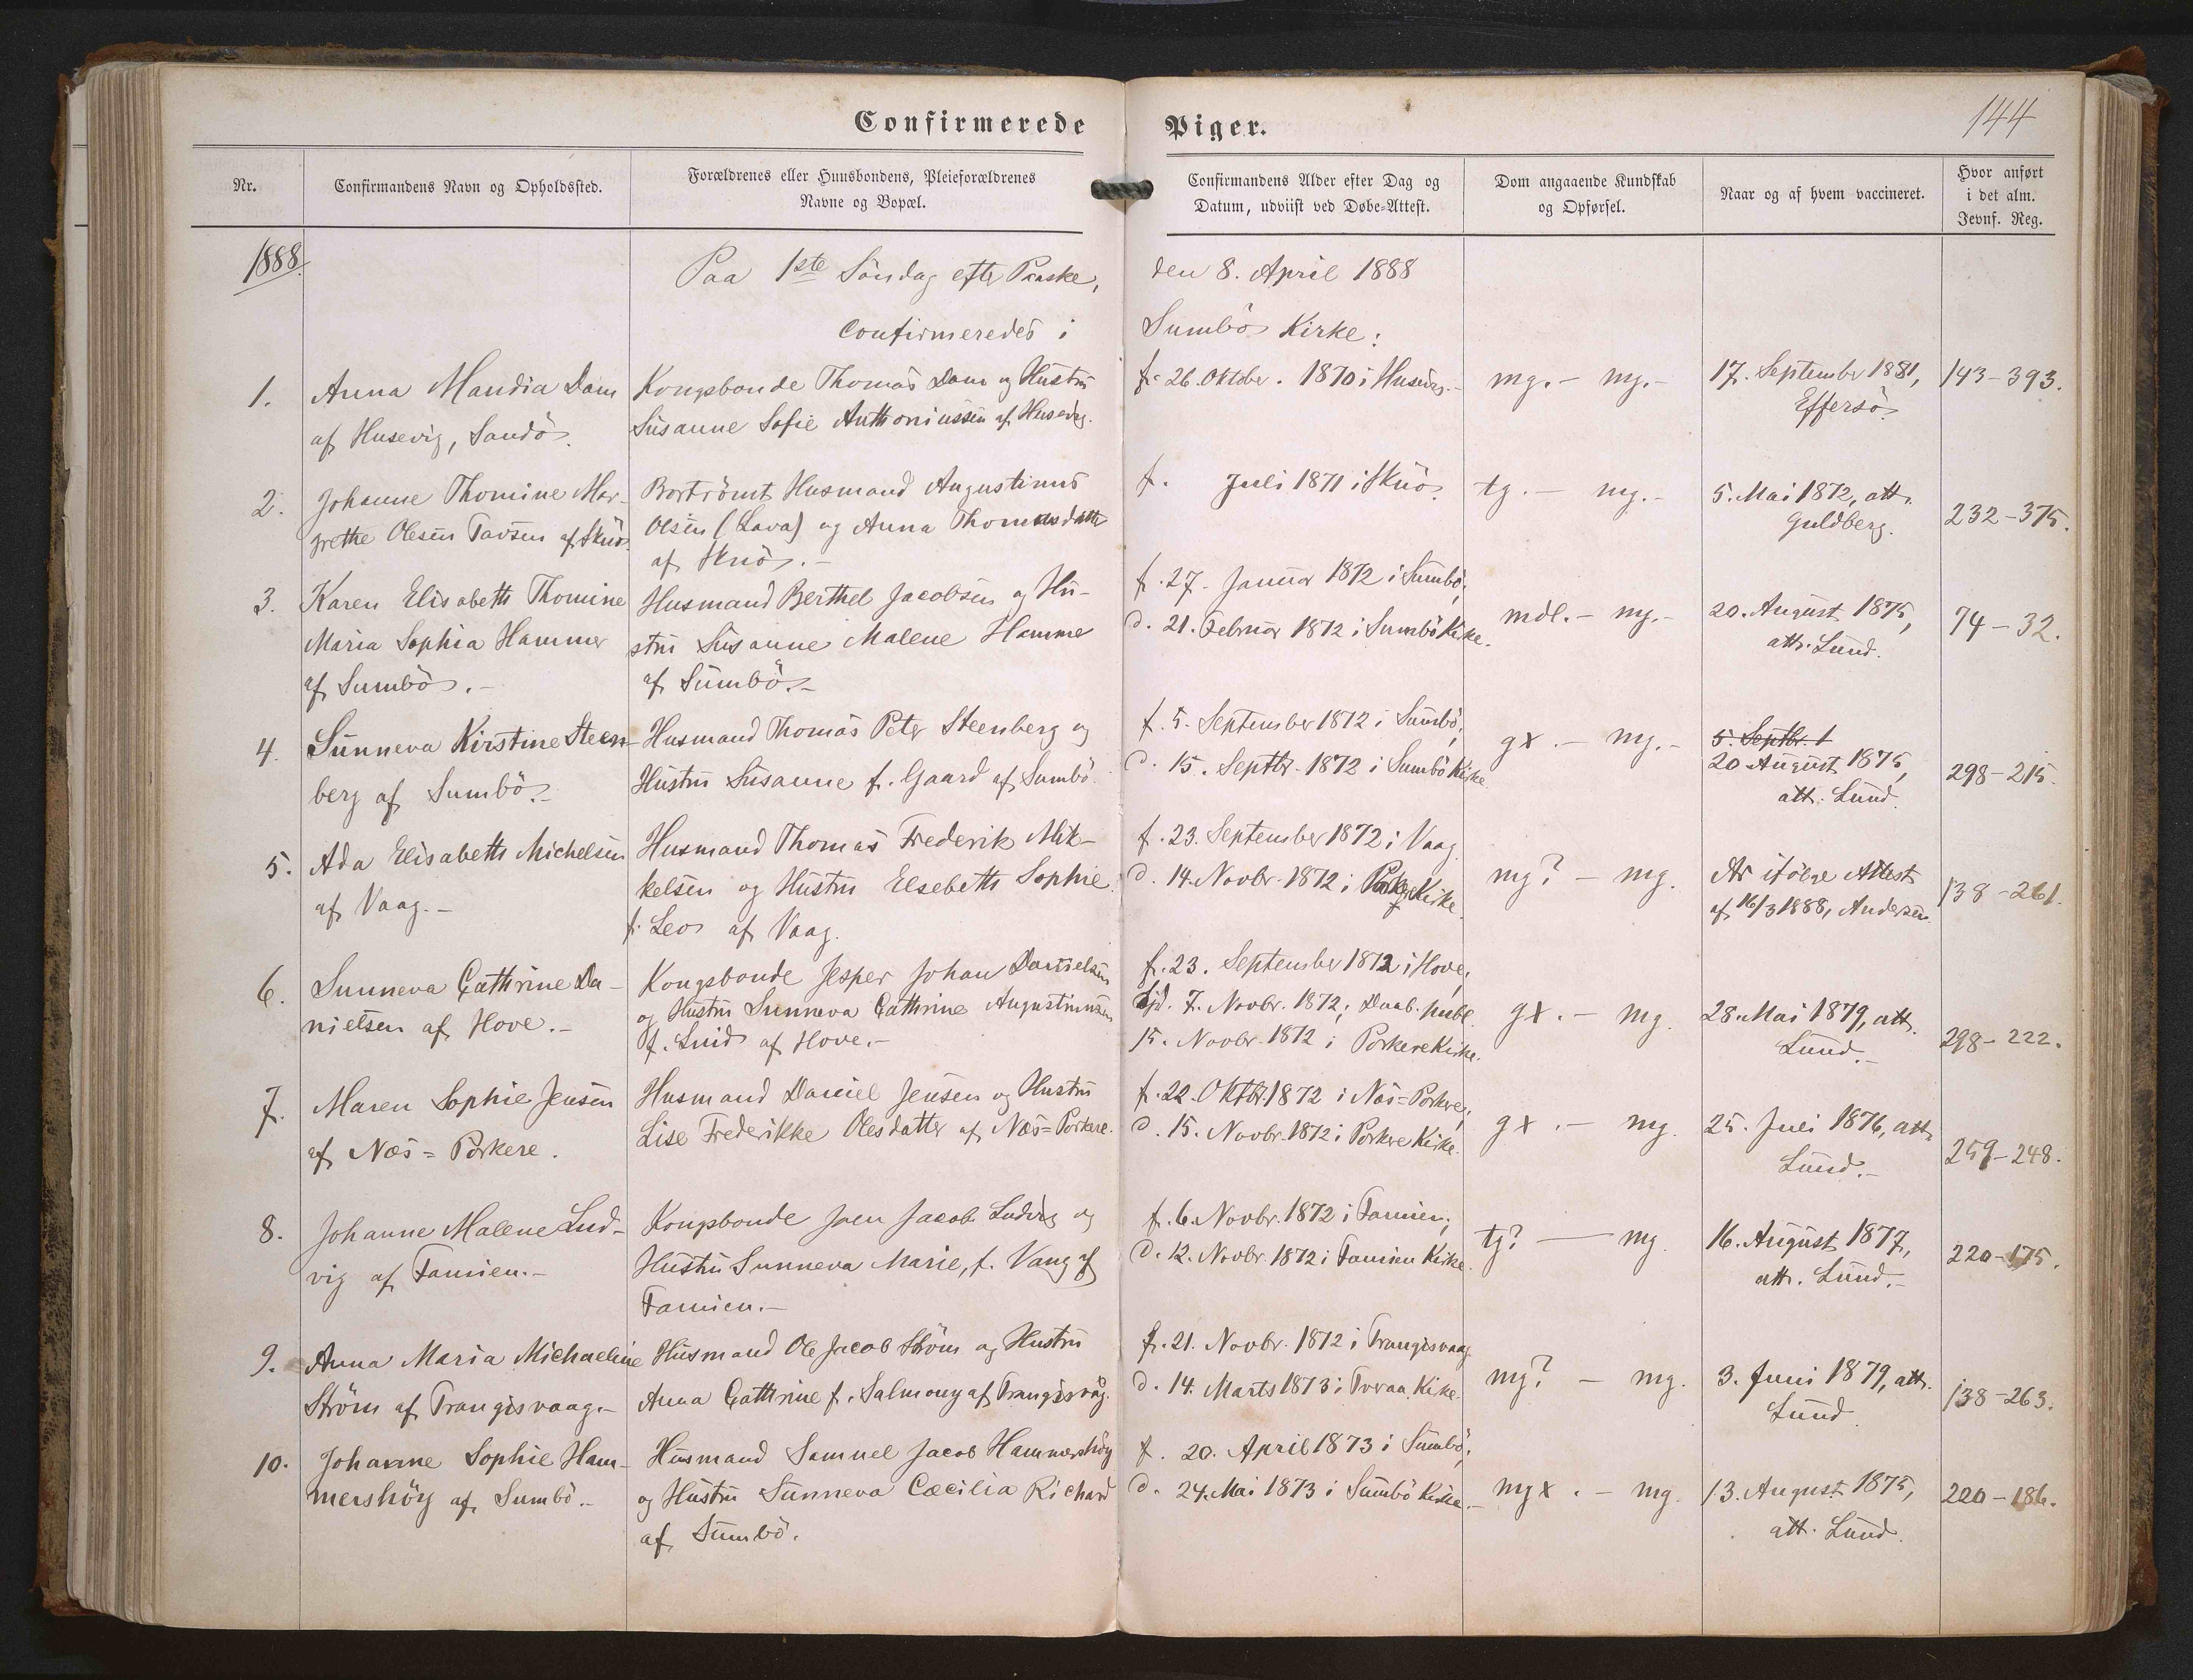 Confirmerede Piger.
144
Nr.
Confirmandens Navn og Opholdssted.
Forældrenes eller Huusbondens, Pleieforældrenes
Navne og Bopæl.
Confirmandens Alder efter Dag og
Datum, udviist ved Døbe-Attest.
Dom angaaende Kundskab
og Opførsel.
Naar og af hvem vaccineret.
Hvor anført
i det alm.
Jevnf. Reg.
1888.
Paa 1ste Söndag efter Paaske, den 8. April 1888
Confirmeredes i Sumbö Kirke:
1.
Anna Mandia Dam
af Husevig, Sandö.
Kongsbonde Thomas Dam og Hustru
Susanne Sofie Anthoniussen af Husevig.
f. 26. Oktober. 1870 i Husevig.-
mg.- mg.-
17. September 1881,
Effersö.
143-393.
2.
Johanne Thomine Mar-
grethe Olesen Tavsen af Skuö.
Bortrömt Husmand Augustinus
Olsen (Lava) og Anna Thomasdatter
af Skuö.-
f. Juli 1871 i Skuö.
tg.- mg.-
5. Mai 1872, att.
Guldberg.
232-375.
3.
Karen Elisabeth Thomine
Maria Sophia Hammer
af Sumbö.-
Husmand Berthel Jacobsen og Hu-
stru Susanne Malene Hamme
af Sumbö.-
f. 27. Januar 1872 i Sumbö;
d. 21. Februar 1872 i Sumbö Kirke.
mdl.- mg.-
20. August 1875,
att. Lund.
74-32.
4.
Sunneva Kirstine Steen-
berg af Sumbö.-
Husmand Thomas Peter Steenberg og
Hustru Susanne f. Gaard af Sumbö.
f. 5. September 1872 i Sumbö;
d. 15. Septbr. 1872 i Sumbö Kirke.
gx.- mg.-
5. Septbr. 1
20 August 1875,
att. Lund.
298-215.
5.
Ada Elisabeth Michelsen
af Vaag.-
Husmand Thomas Frederik Mik-
kelsen og Hustru Elsebeth Sophie
f. Leo af Vaag.
f. 23. September 1872 i Vaag
d. 14. Novbr. 1872 i Kirke.
mg? - mg.
Ar ifölge Attest
af 16/3 1888, Andersen.
138-261.
6.
Sunneva Cathrine Da-
nielsen af Hove.-
Kongsbonde Jesper Johan Danielsen
og Hustru Sunneva Cathrine Augustinussen
f. Luid af Hove.-
f. 23. September 1872 i Hove;
hjd. 7. Novbr. 1872; Daab. publ.
15. Novbr. 1872 i Porkere Kirke.
gx.- mg.
28. Mai 1879, att.
Lund.-
298-222.
7.
Maren Sophie Jensen
af Næs=Porkere.
Husmand Daniel Jensen og Hustru
Lise Frederikke Olesdatter af Næs=Porkere.
f. 22. Oktbr. 1872 i Næs=Porkere;
d. 15. Novbr. 1872 i Porkere Kirke.
gx.- mg.
25. Juli 1876, att.
Lund.-
259-248.
8.
Johanne Malene Lud-
vig af Famien.-
Kongsbonde Joen Jacob Ludvig og
Hustru Sunneva Marie, f. Vang af
Famien.-
f. 6. Novbr. 1872 i Famien;
d. 12. Novbr. 1872 i Famien Kirke.
tg? - mg.
16. August 1877,
att. Lund.-
220-175.
9.
Anna Maria Michaeline
Ström af Trangisvaag.-
Husmand Ole Jacob Ström og Hustru
Anna Cathrine f. Salmony af Trangisvåg.
f. 21. Novbr. 1872 i Trangisvaag
d. 14. Marts 1873 i Tveraa Kirke.
mg? - mg.
3. Juni 1879, att.
Lund.
138-263.
10.
Johanne Sophie Ham-
mershöy af Sumbö.-
Husmand Samuel Jacob Hammershöy
og Hustru Sunneva Cæcilia Richard
af Sumbö.
f. 20. April 1873 i Sumbö;
d. 24. Mai 1873 i Sumbö Kirke.-
mgx.- mg.
13. August 1875,
att. Lund.
220-186.